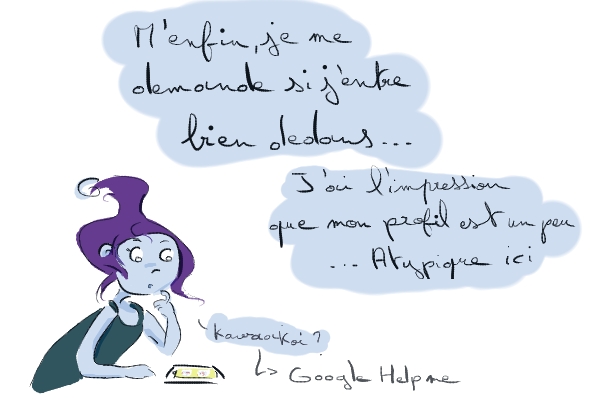 M'enfin, je me
demande si j'entre
bien dedans...
J'ai l'impression
que mon profil est un peu
... Atypique ici
Google Help me